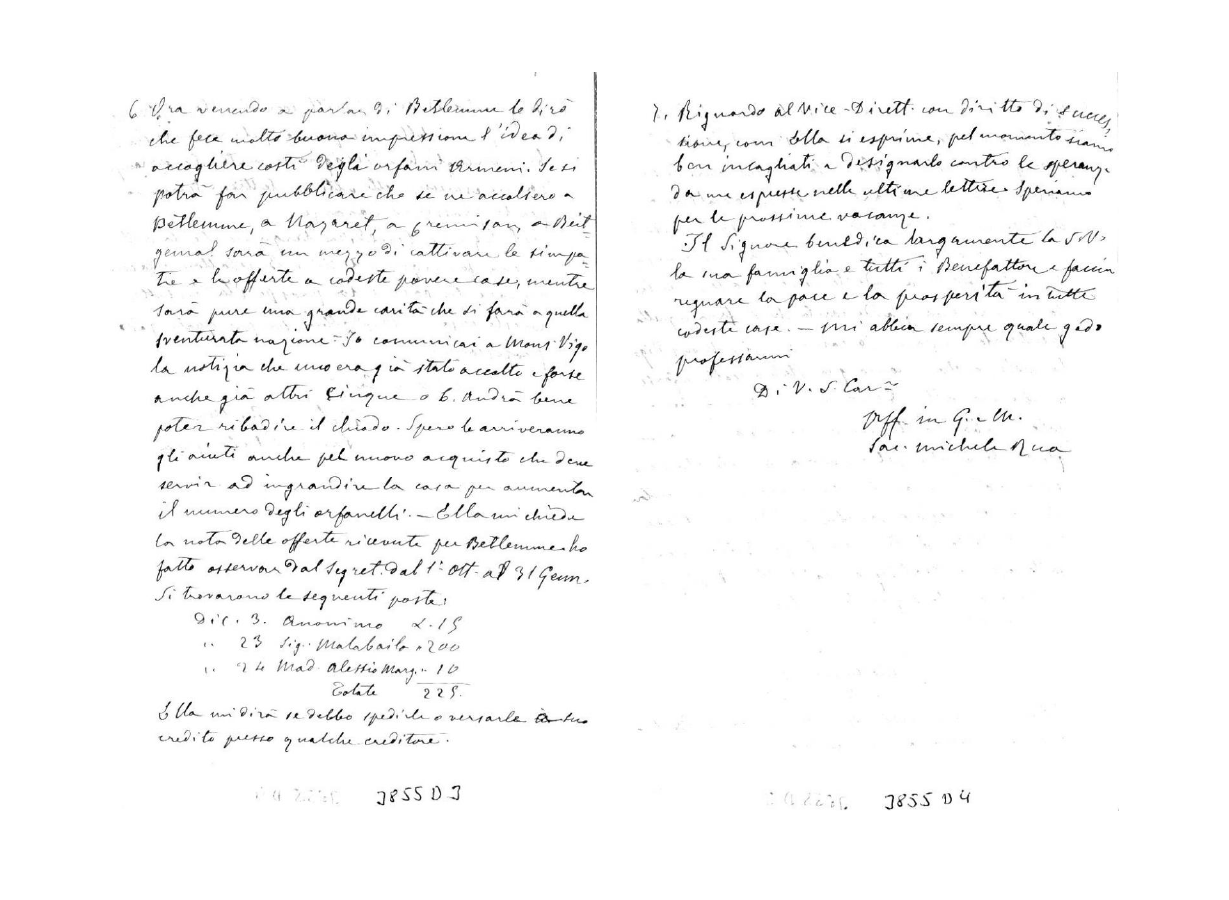 6. Ora venendo a parlar di Betlemme le dirò
che fece molto buona impressione l'idea di
accogliere costì degli orfani Armeni. Se si
potrà far pubblicare che se ne accolsero a
Betlemme, a Nazaret, a Cremisan, a Beit-
gemal sarà un mezzo di cattivare le simpa-
tie e le offerte a codeste povere case, mentre
sarà pure una grande carità che si farà a quella
sventurata nazione. Io comunicai a Mons. Vigo
la notizia che uno era già stato accolto e forse
anche già altri cinque o 6. Andrà bene
poter ribadire il chiodo. Spero le arriveranno
gli aiuti anche pel nuovo acquisto che deve
servir ad ingrandire la casa per aumentar
il numero degli orfanelli. — Ella mi chiede
la nota delle offerte ricevute per Betlemme ho
fatto osservar dal Segret. dal 1° Ott. al 31 Genn.
Si trovarono le seguenti poste:
Dic. 3. Anonimo L. 15
" 23 Sig. Malabaila " 200
" 24 Mad. Alessio Marg. " 10
Totale 225.
Ella mi dirà se debbo spedirle o versarle a suo
credito presso qualche creditore.
J855 D 3
7. Riguardo al Vice-Dirett. con diritto di succes-
sione, com' Ella si esprime, pel momento siamo
ben incagliati a designarlo contro le speranze
da me espresse nelle ultime lettere. Speriamo
per le prossime vacanze.
Il Signore benedica largamente la S. V.
la sua famiglia e tutti i Benefattori e faccia
regnare la pace e la prosperità in tutte
codeste case. — Mi abbia sempre quale godo
professarmi
Di V. S. Car.ma
Aff. in G. e M.
Sac. Michele Rua
J855 D 4